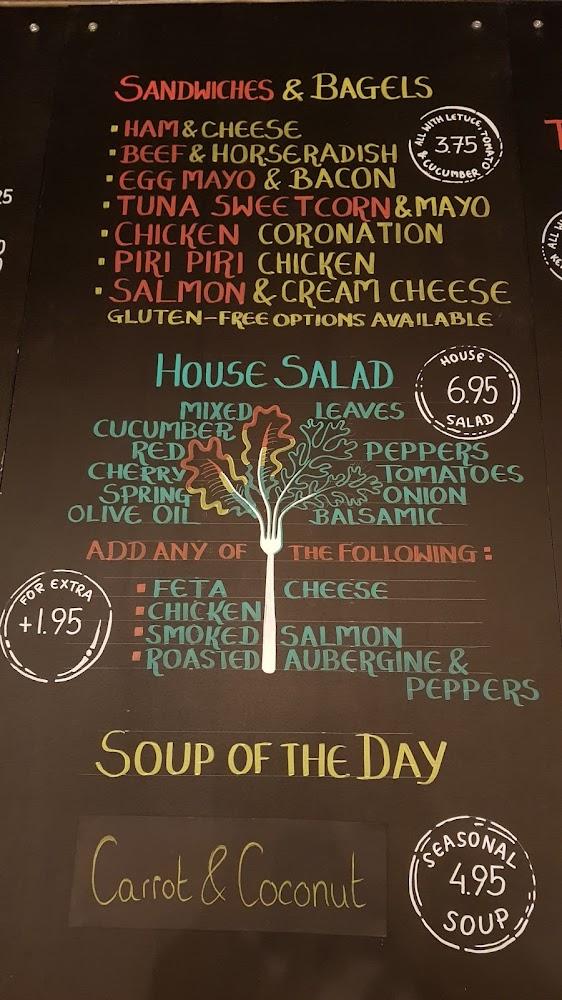 SANDWICHES & BAGELS
HAM & CHEESE
BEEF & HORSERADISH
EGG MAYO & BACON
TUNA SWEETCORN & MAYO
CHICKEN CORONATION
PIRI PIRI CHICKEN
SALMON & CREAM CHEESE
GLUTEN-FREE OPTIONS AVAILABLE
ALL WITH LETUCE, TOMATO
3.75
& CUCUMBER
HOUSE SALAD
HOUSE
6.95
SALAD
MIXED LEAVES
CUCUMBER
RED PEPPERS
CHERRY TOMATOES
SPRING ONION
OLIVE OIL BALSAMIC
ADD ANY OF THE FOLLOWING:
FOR EXTRA
+1.95
FETA CHEESE
CHICKEN
SMOKED SALMON
ROASTED AUBERGINE &
PEPPERS
SOUP OF THE DAY
Carrot & Coconut
SEASONAL
4.95
SOUP